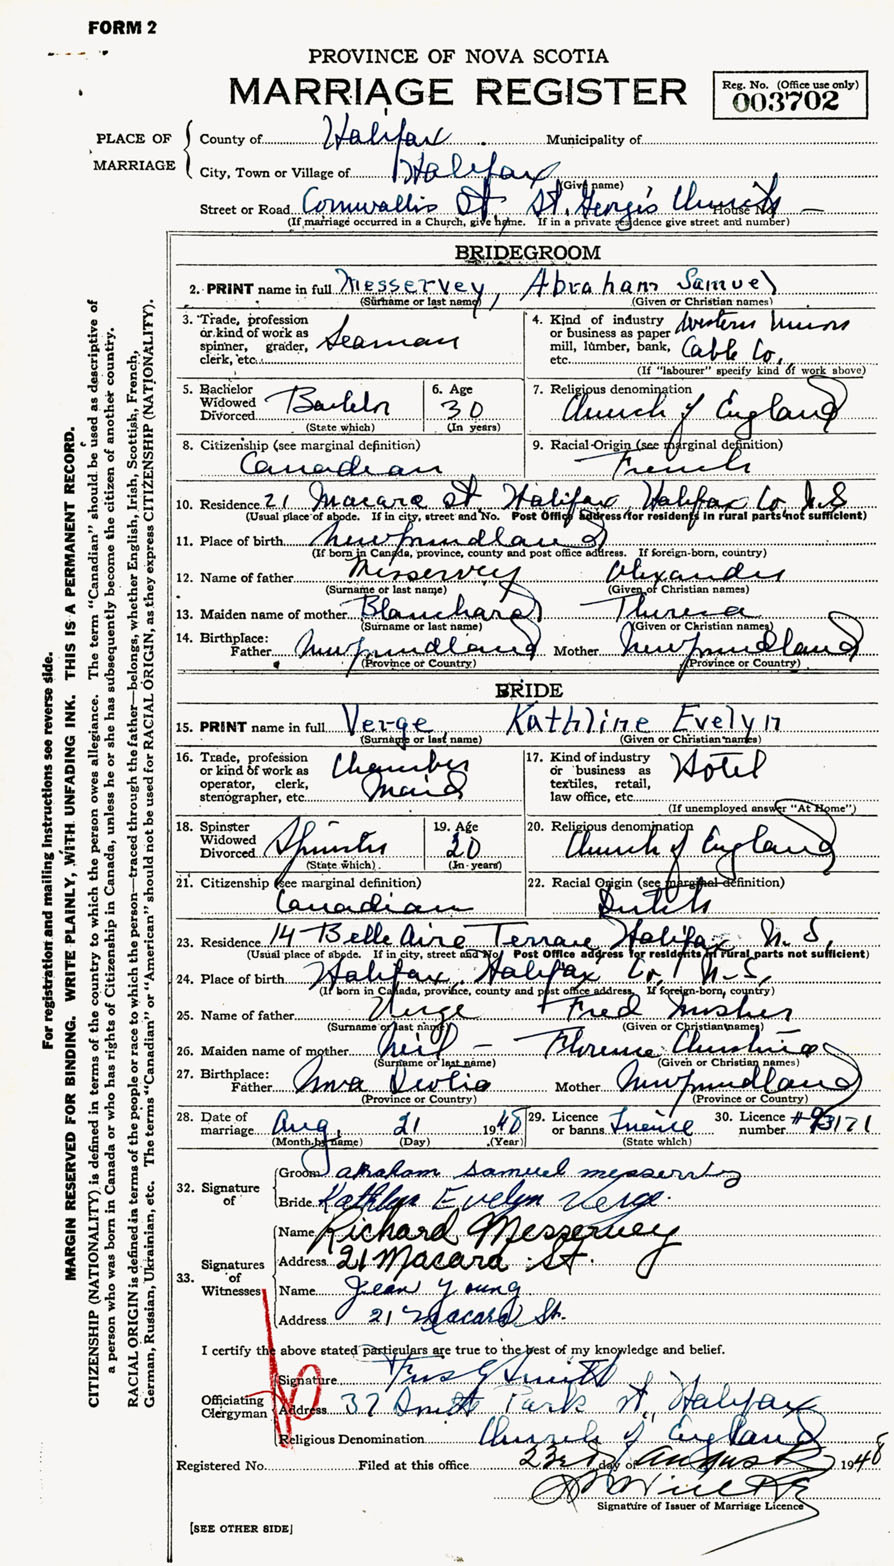 FORM 2
PROVINCE OF NOVA SCOTIA
MARRIAGE REGISTER
Reg. No. (Office use only)
003702
PLACE OF MARRIAGE
County of Halifax Municipality of
City, Town or Village of Halifax
(Give name)
Street or Road Cornwallis St St. George's Church House No. —
(If marriage occurred in a Church, give name. If in a private residence give street and number)
BRIDEGROOM
2. PRINT name in full Messervey, Abraham Samuel
(Surname or last name) (Given or Christian names)
3. Trade, profession or kind of work as spinner, grader, clerk, etc. Seaman
4. Kind of industry or business as paper mill, lumber, bank, etc. Western Union Cable Co.
(If "labourer" specify kind of work above)
5. Bachelor Widowed Divorced Bachelor
(State which)
6. Age 30
(In years)
7. Religious denomination
Church of England
8. Citizenship (see marginal definition)
Canadian
9. Racial Origin (see marginal definition)
French
10. Residence 21 Macara St Halifax Halifax Co. N.S
(Usual place of abode. If in city, street and No. Post Office address for residents in rural parts not sufficient)
11. Place of birth Newfoundland
(If born in Canada, province, county and post office address. If foreign-born, country)
12. Name of father Messervey Alexander
(Surname or last name) (Given or Christian names)
13. Maiden name of mother Blanchard Theresa
(Surname or last name) (Given or Christian names)
14. Birthplace:
Father Newfoundland Mother Newfoundland
(Province or Country) (Province or Country)
BRIDE
15. PRINT name in full Verge Kathline Evelyn
(Surname or last name) (Given or Christian names)
16. Trade, profession or kind of work as operator, clerk, stenographer, etc. Chamber Maid
17. Kind of industry or business as textiles, retail, law office, etc. Hotel
(If unemployed answer "At Home")
18. Spinster Widowed Divorced Spinster
(State which)
19. Age 20
(In years)
20. Religious denomination
Church of England
21. Citizenship (see marginal definition)
Canadian
22. Racial Origin (see marginal definition)
Dutch
23. Residence 14 Belle Aire Terrace Halifax N.S.
(Usual place of abode. If in city, street and No. Post Office address for residents in rural parts not sufficient)
24. Place of birth Halifax, Halifax Co. N.S.
(If born in Canada, province, county and post office address. If foreign-born, country)
25. Name of father Verge Fred Mosher
(Surname or last name) (Given or Christian names)
26. Maiden name of mother Neil — Florence Christina
(Surname or last name) (Given or Christian names)
27. Birthplace:
Father Nova Scotia Mother Newfoundland
(Province or Country) (Province or Country)
28. Date of marriage Aug. 21 1948
(Month by name) (Day) (Year)
29. Licence or banns Licence
(State which)
30. Licence number #93171
32. Signature of
Groom abraham samuel messervey
Bride Kathlyn Evelyn Verge.
33. Signatures of Witnesses
Name Richard Messervey
Address 21 Macara St.
Name Jean Young
Address 21 Macara St.
I certify the above stated particulars are true to the best of my knowledge and belief.
Officiating Clergyman
Signature Smith
Address 37 Smith Park St, Halifax
Religious Denomination Church of England
Registered No. Filed at this office 23rd day of August 1948
Signature of Issuer of Marriage Licence
[SEE OTHER SIDE]
For registration and mailing instructions see reverse side.
MARGIN RESERVED FOR BINDING. WRITE PLAINLY, WITH UNFADING INK. THIS IS A PERMANENT RECORD.
CITIZENSHIP (NATIONALITY) is defined in terms of the country to which the person owes allegiance. The term "Canadian" should be used as descriptive of
a person who was born in Canada or who has rights of Citizenship in Canada, unless he or she has subsequently become the citizen of another country.
RACIAL ORIGIN is defined in terms of the people or race to which the person—traced through the father—belongs, whether English, Irish, Scottish, French,
German, Russian, Ukrainian, etc. The terms "Canadian" or "American" should not be used for RACIAL ORIGIN, as they express CITIZENSHIP (NATIONALITY).